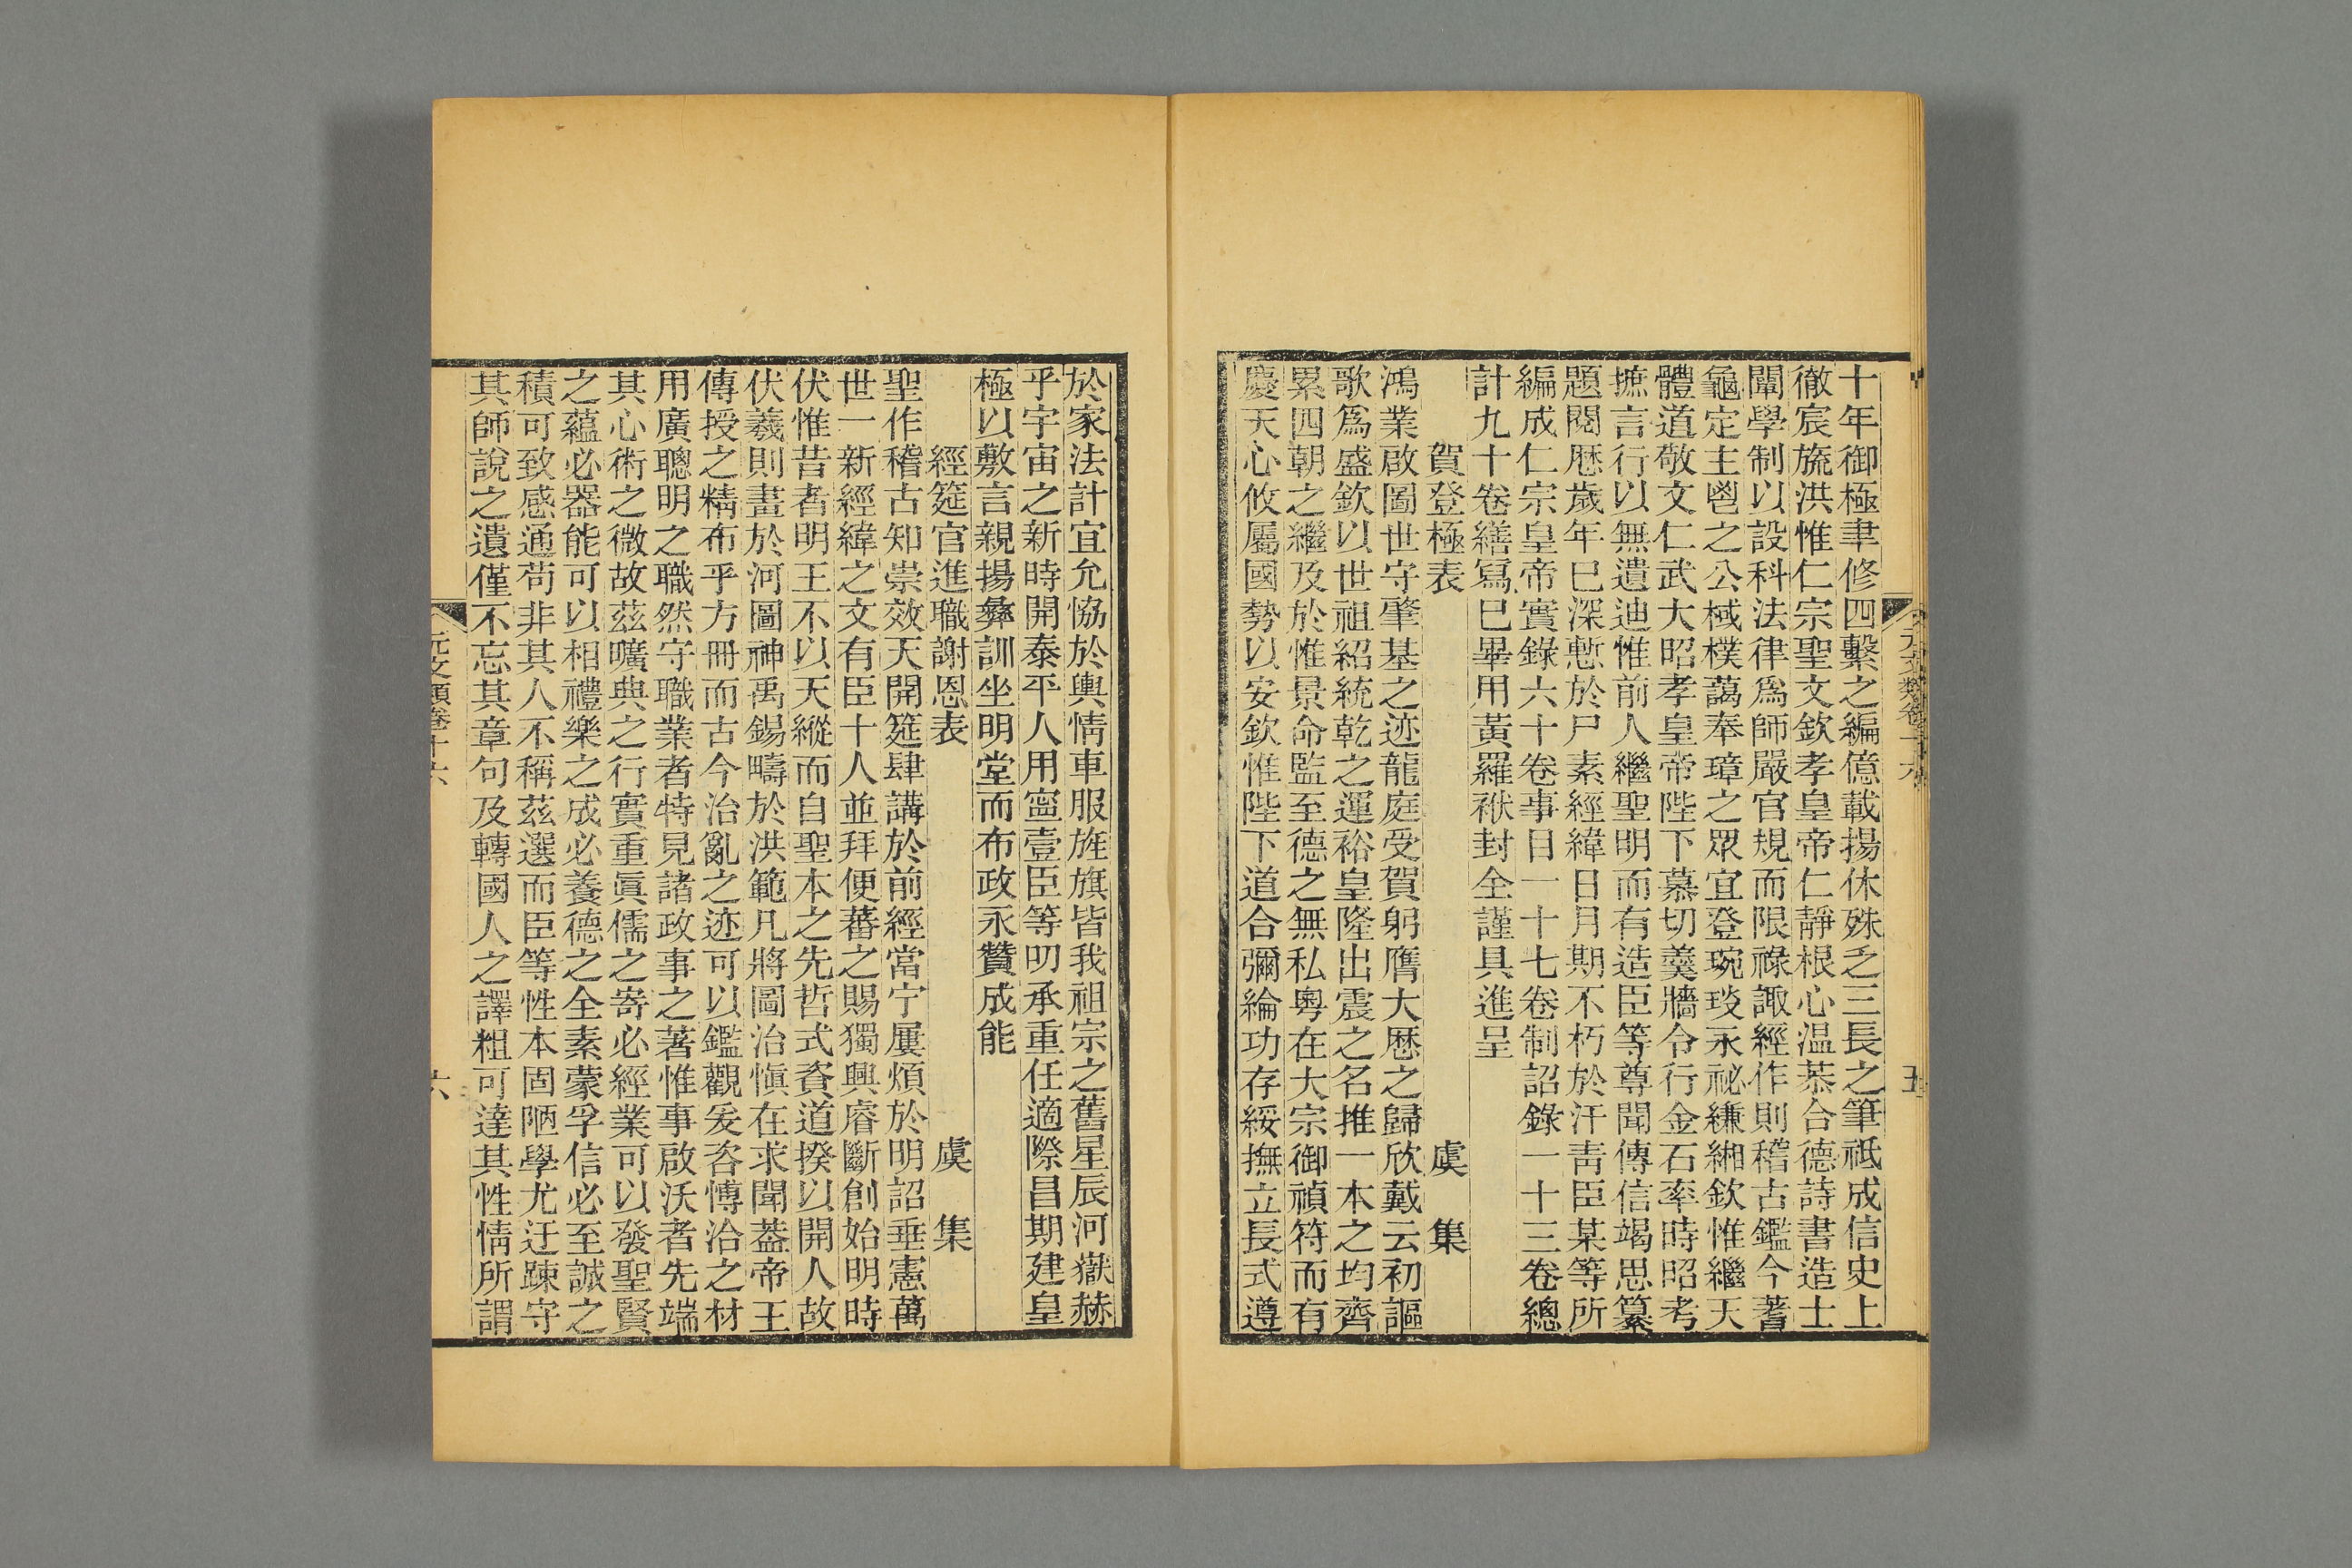 十年御極聿修四繫之編億載揚休殊乏三長之筆祗成信史上
徹宸旒洪惟仁宗聖文欽孝皇帝仁靜根心温恭合德詩書造士
闡學制以設科法律爲師嚴官規而限祿諏經作則稽古鑑今蓍
龜定主鬯之公棫樸藹奉璋之眾宜登琬琰永祕縑緗欽惟繼天
體道敬文仁武大昭孝皇帝陛下慕切羹牆令行金石率時昭考
摭言行以無遺迪惟前人繼聖明而有造臣等尊聞傳信竭思纂
題閱歷歲年已深慙於尸素經緯日月期不朽於汗靑臣某等所
編成仁宗皇帝實錄六十卷事目一十七卷制詔錄一十三卷總
計九十卷繕寫已畢用黃羅袱封全謹具進呈
賀登極表 虞集
鴻業啟圖世守肇基之迹龍庭受賀躬膺大歷之歸欣戴云初謳
歌爲盛欽以世祖紹統乾之運裕皇隆出震之名推一本之均齊
累四朝之繼及於惟景命監至德之無私粵在大宗御禎符而有
慶天心攸屬國勢以安欽惟陛下道合彌綸功存綏撫立長式遵
於家法計宜允恊於輿情車服旌旗皆我祖宗之舊星辰河嶽赫
乎宇宙之新時開泰平人用寧壹臣等叨承重任適際昌期建皇
極以敷言親揚彝訓坐明堂而布政永贊成能
經筵官進職謝恩表 虞集
聖作稽古知崇效天開筵肆講於前經當宁屢煩於明詔垂憲萬
世一新經緯之文有臣十人並拜便蕃之賜獨興睿斷創始明時
伏惟昔者明王不以天縱而自聖本之先哲式資道揆以開人故
伏羲則畫於河圖神禹錫疇於洪範凡將圖治愼在求聞葢帝王
傳授之精布乎方冊而古今治亂之迹可以鑑觀爰咨愽洽之材
用廣聰明之職然守職業者特見諸政事之著惟事啟沃者先端
其心術之微故茲曠典之行實重眞儒之寄必經業可以發聖賢
之蘊必器能可以相禮樂之成必養德之全素蒙孚信必至誠之
積可致感通苟非其人不稱茲選而臣等性本固陋學尤迂踈守
其師說之遺僅不忘其章句及轉國人之譯粗可達其性情所謂
元文類卷十六 六